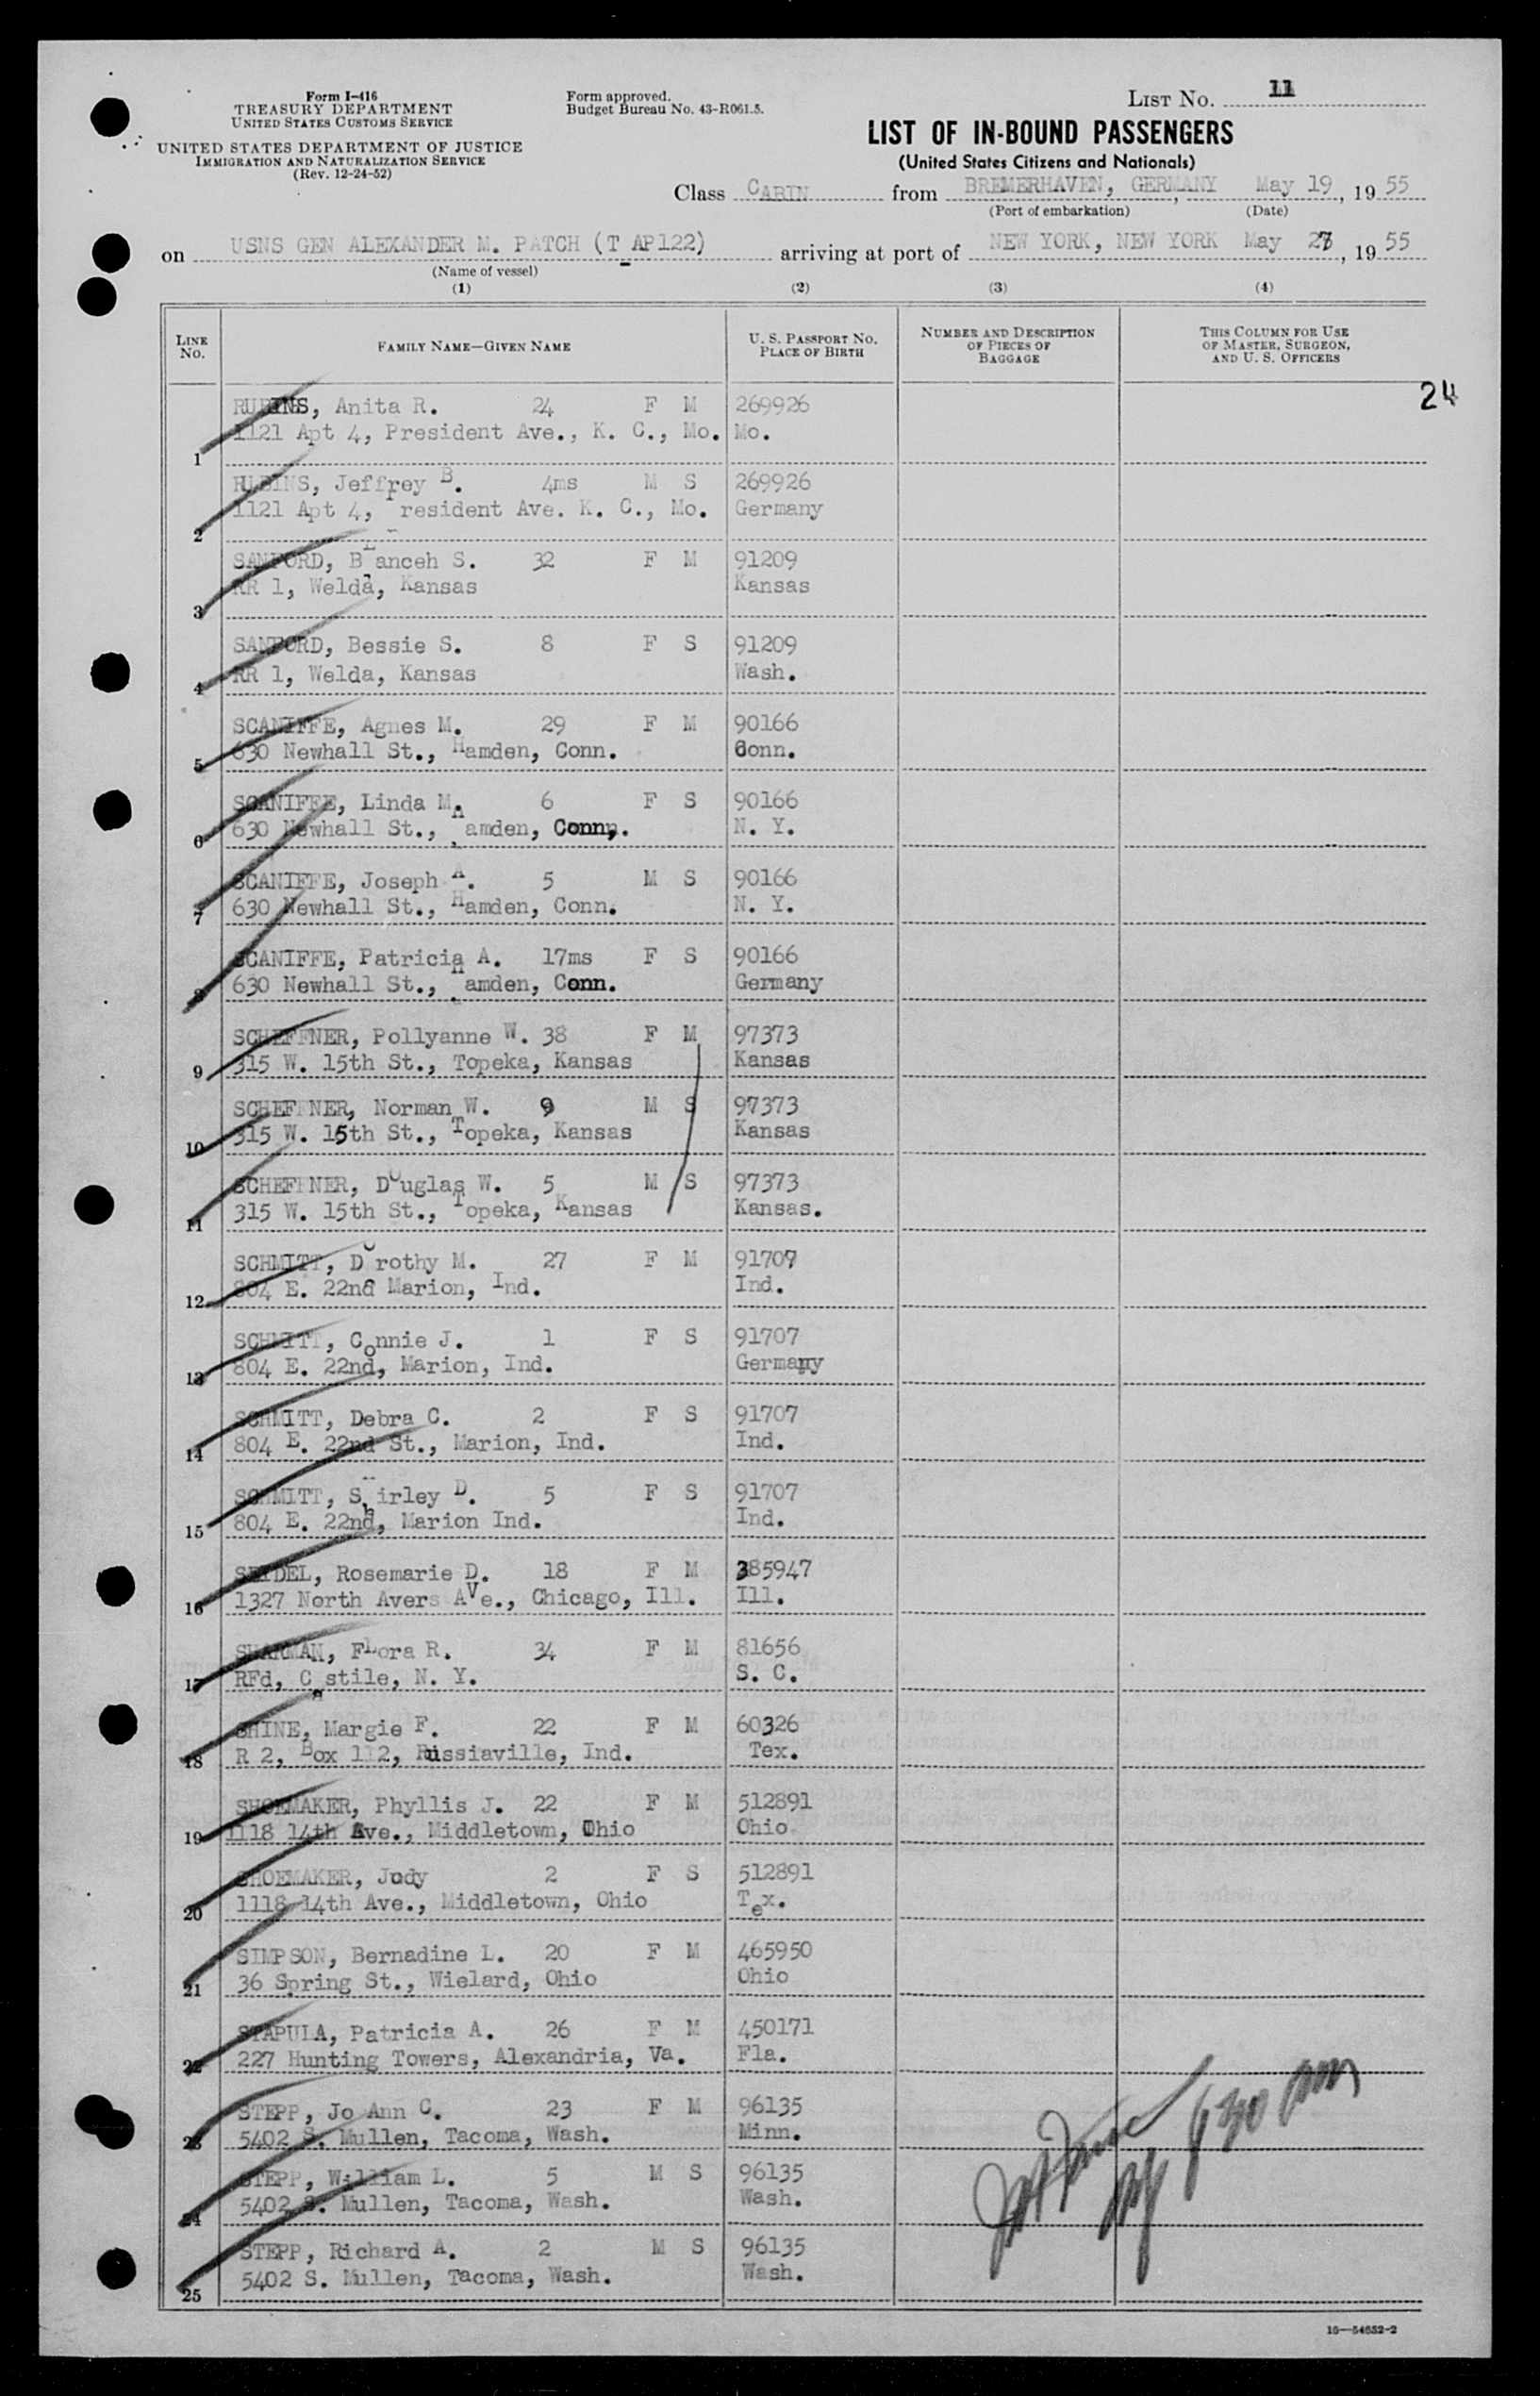 Form I-416
TREASURY DEPARTMENT
UNITED STATES CUSTOMS SERVICE
UNITED STATES DEPARTMENT OF JUSTICE
IMMIGRATION AND NATURALIZATION SERVICE
(Rev. 12-24-52)
Form approved.
Budget Bureau No. 43-R061.5.
LIST NO. 11
LIST OF IN-BOUND PASSENGERS
(United States Citizens and Nationals)
Class CABIN from BREMERHAVEN, GERMANY, May 19, 1955
(Port of embarkation) (Date)
on USNS GEN ALEXANDER M. PATCH (T_AP122) arriving at port of NEW YORK, NEW YORK May 27, 1955
(Name of vessel)
(1) (2) (3) (4)
LINE NO. FAMILY NAME—GIVEN NAME U. S. PASSPORT NO. PLACE OF BIRTH NUMBER AND DESCRIPTION OF PIECES OF BAGGAGE THIS COLUMN FOR USE OF MASTER, SURGEON, AND U. S. OFFICERS
24
RUBINS, Anita R. 24 F M 269926
1 1121 Apt 4, President Ave., K. C., Mo. Mo.
RUBINS, Jeffrey B. 4ms M S 269926
2 1121 Apt 4, President Ave. K. C., Mo. Germany
SANFORD, BLanceh S. 32 F M 91209
3 RR 1, Welda, Kansas Kansas
SANFORD, Bessie S. 8 F S 91209
4 RR 1, Welda, Kansas Wash.
SCANIFFE, Agnes M. 29 F M 90166
5 630 Newhall St., Hamden, Conn. Conn.
SCANIFFE, Linda M. 6 F S 90166
6 630 Newhall St., Hamden, Conn. N. Y.
SCANIFFE, Joseph A. 5 M S 90166
7 630 Newhall St., Hamden, Conn. N. Y.
SCANIFFE, Patricia A. 17ms F S 90166
8 630 Newhall St., Hamden, Conn. Germany
SCHEFFNER, Pollyanne W. 38 F M 97373
9 315 W. 15th St., Topeka, Kansas Kansas
SCHEFFNER, Norman W. 9 M S 97373
10 315 W. 15th St., Topeka, Kansas Kansas
SCHEFFNER, Douglas W. 5 M S 97373
11 315 W. 15th St., Topeka, Kansas Kansas.
SCHMITT, Dorothy M. 27 F M 91707
12 804 E. 22nd Marion, Ind. Ind.
SCHMITT, Connie J. 1 F S 91707
13 804 E. 22nd, Marion, Ind. Germany
SCHMITT, Debra C. 2 F S 91707
14 804 E. 22nd St., Marion, Ind. Ind.
SCHMITT, Shirley D. 5 F S 91707
15 804 E. 22nd, Marion Ind. Ind.
SEIDEL, Rosemarie D. 18 F M 385947
16 1327 North Avers Ave., Chicago, Ill. Ill.
SHARMAN, FLora R. 34 F M 81656
17 RFd, Castile, N. Y. S. C.
SHINE, Margie F. 22 F M 60326
18 R 2, Box 112, Russiaville, Ind. Tex.
SHOEMAKER, Phyllis J. 22 F M 512891
19 1118 14th Ave., Middletown, Ohio Ohio
SHOEMAKER, Judy 2 F S 512891
20 1118 14th Ave., Middletown, Ohio Tex.
SIMPSON, Bernadine L. 20 F M 465950
21 36 Spring St., Wielard, Ohio Ohio
STAPULA, Patricia A. 26 F M 450171
22 227 Hunting Towers, Alexandria, Va. Fla.
STEPP, Jo Ann C. 23 F M 96135
23 5402 S. Mullen, Tacoma, Wash. Minn.
STEPP, William L. 5 M S 96135
24 5402 S. Mullen, Tacoma, Wash. Wash.
STEPP, Richard A. 2 M S 96135
25 5402 S. Mullen, Tacoma, Wash. Wash.
16—54652-2